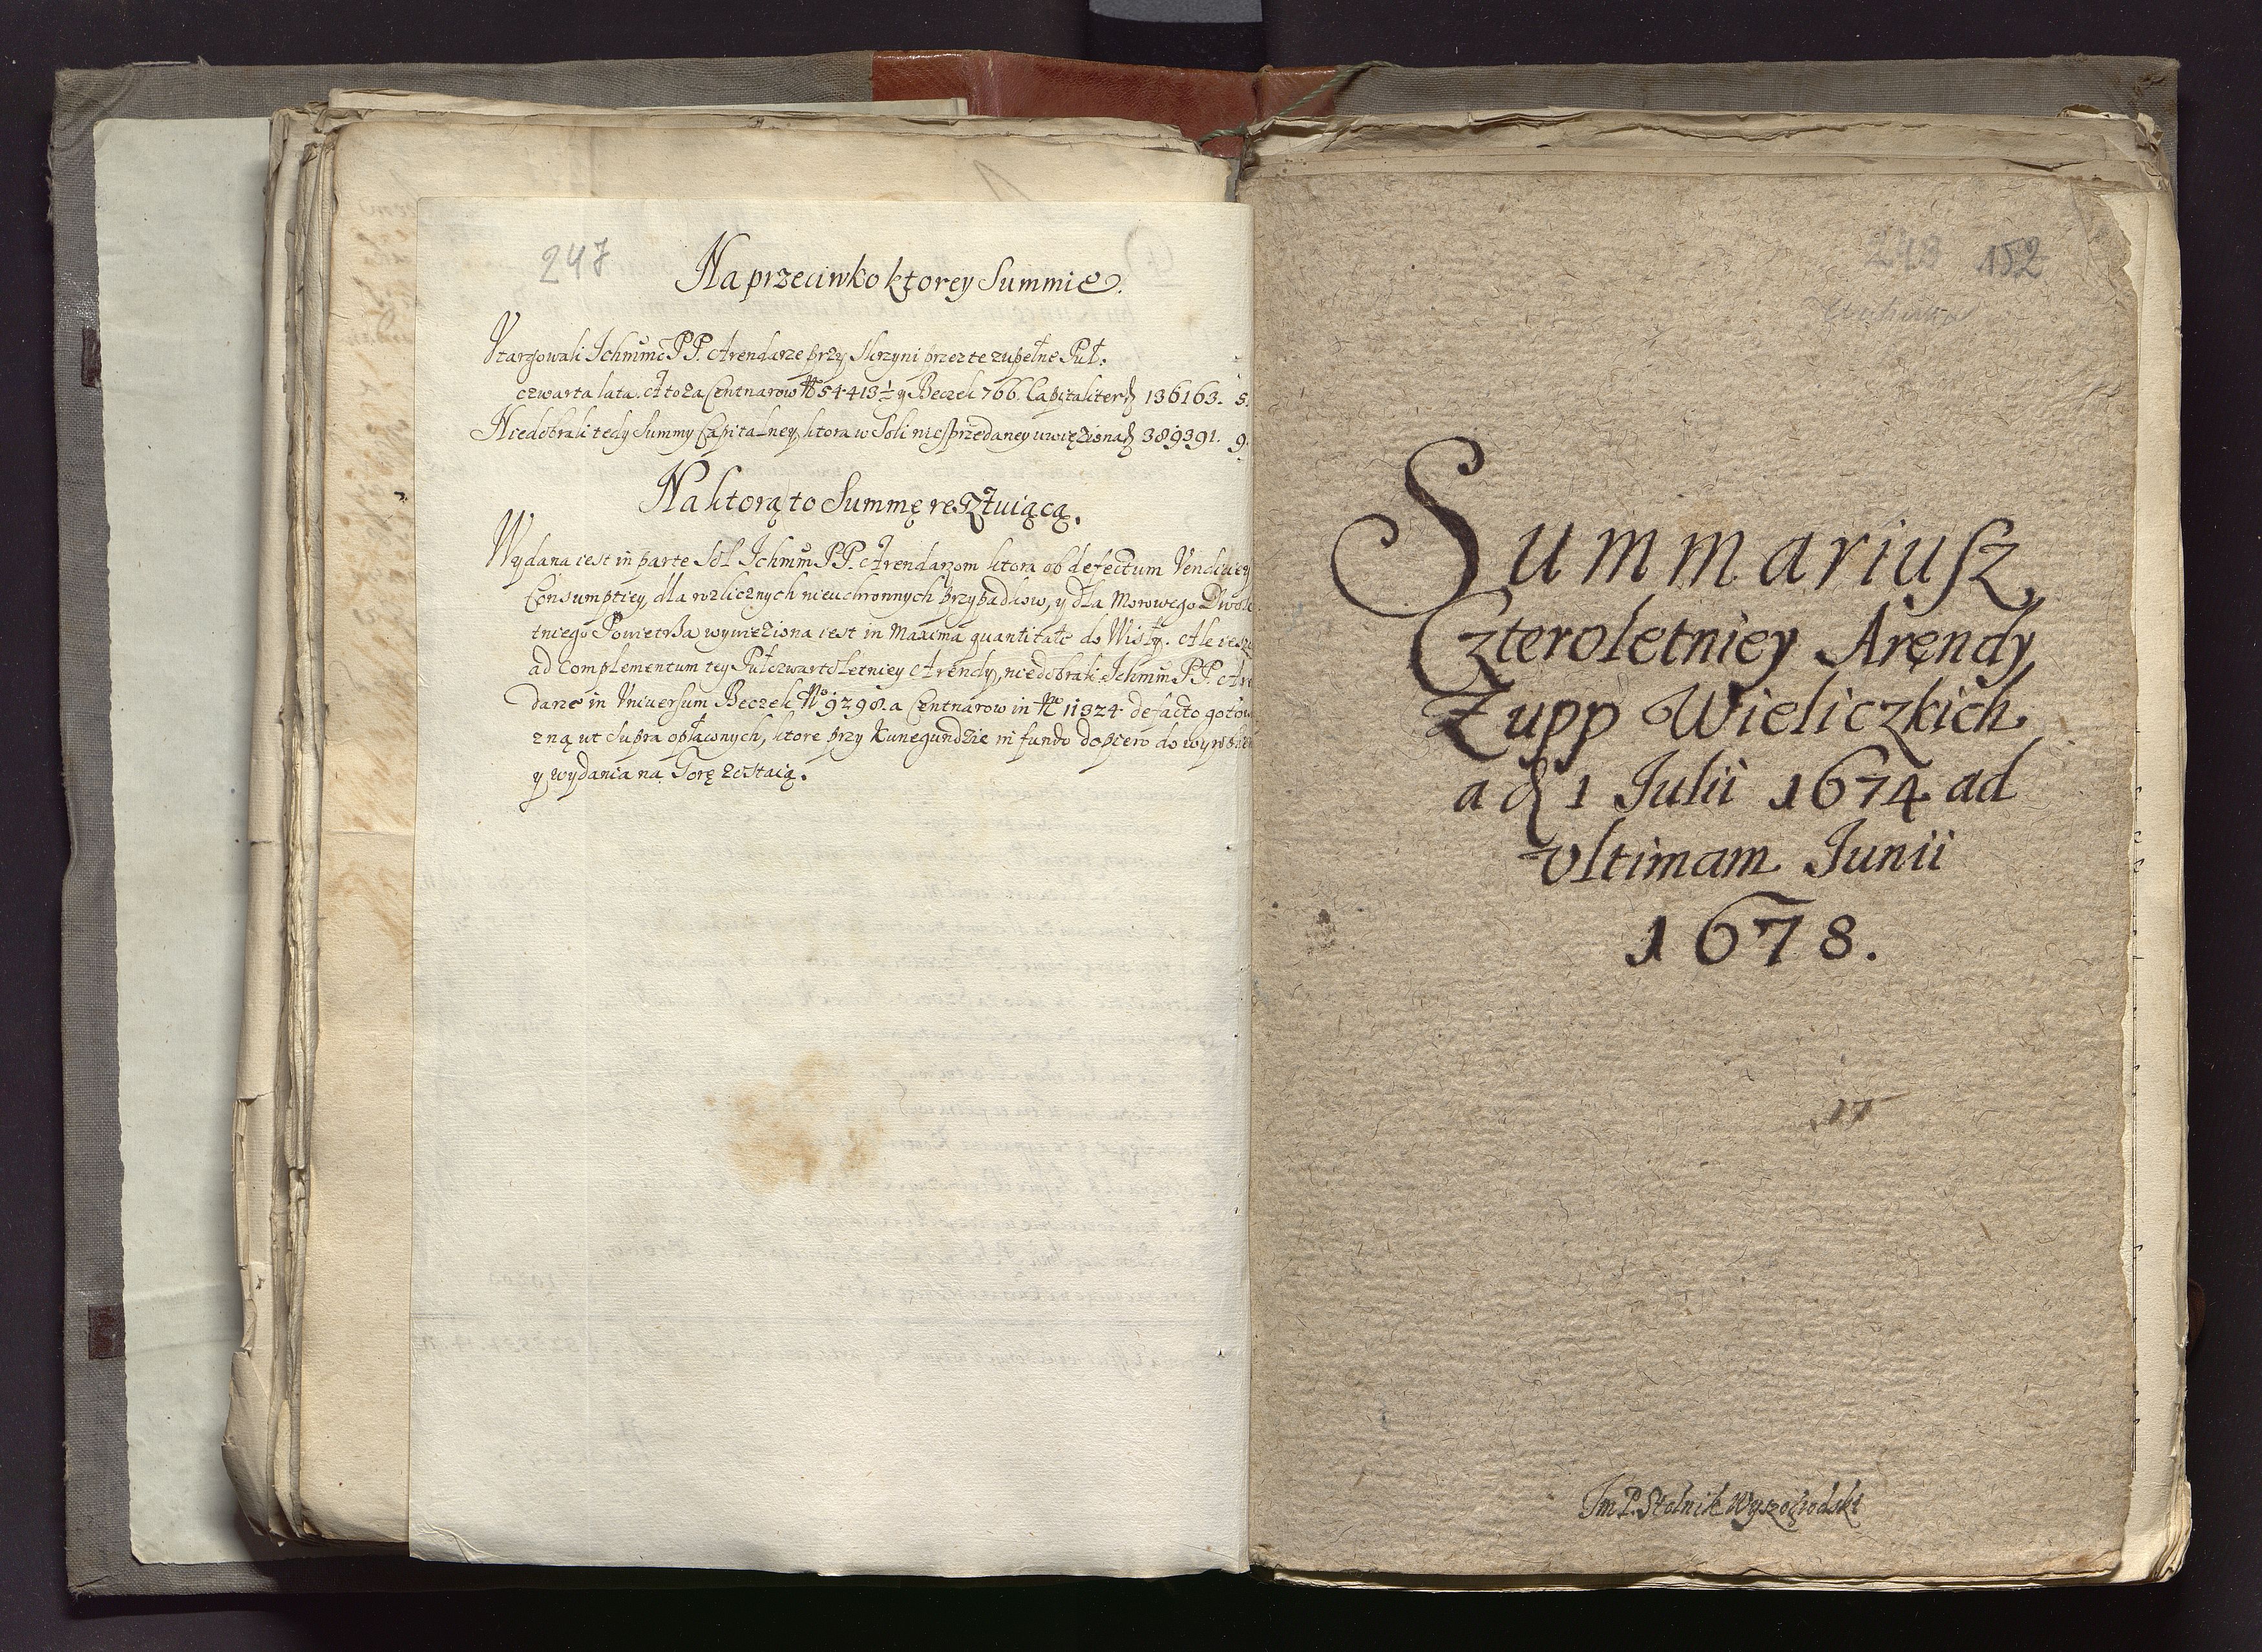 247
Na przeciwko ktorey Summie.
Vtargowali Ichmmć PP. Arendarze przy Skrzyni przez te zupełne Puł,
czwarta lata. A to za Centnarow No 54413½ y Beczek 766. Capitaliter f 136163. 5.
Niedobrali tedy Summy Capitalney, ktora w Soli niesprzedaney uwięziona f 389391. 9.
Na ktorą to Summę resztuiącą.
Wydana iest in parte Sol Ichmm PP. Arendarzom ktora ob defectum
Consumptiey, dla rozlicznych nieuchronnych przypadkow, y dla Morowego
tniego Powietrza wywieziona iest in Maxima quantitate do Wisły. Ale
ad Complementum tey Pułczwartoletniey Arendy, niedobrali Ichmm PP.
darze in Vniversum Beczek No 9298. a Centnarow in No 11324 de facto
zną ut Supra opłaconych, ktore przy Kunegundzie in fundo dopiero do
y wydania na Gorę zostaią.
248 152
Summariusz
Czteroletniey Arendy
Zupp Wieliczkich
a d 1 Julii 1674 ad
Vltimam Junii
1678.
17
Jm P. Stolnik Wyszogrodski